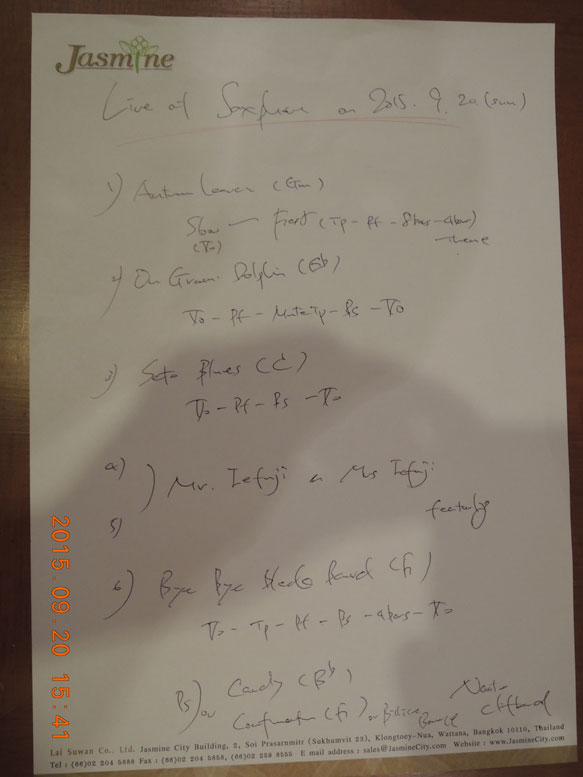 Jasmine
Live at on 2015. 9. 20 (sun)
1) Autumn Leaves (Gm)
Slow — Fast (Tp - Pf - 8bars - 4bars)
(Vo) - theme
2) On Green Dolphin (Eb)
Vo - Pf - Mute Tp - Bs - Vo
3) Blues (C)
Vo - Pf - Bs - Vo
4)
) Mr. Iefuji & Ms Iefuji
5) featuring
6) Bye Bye Black (F)
Vo - Tp - Pf - Bs - 4bars - Vo
or Candy (Bb)
Confirmation (F) or
2015.09.20 15:41
Lai Suwan Co., Ltd. Jasmine City Building, 2, Soi Prasarnmitr (Sukhumvit 23), Klongtoey-Nua, Wattana, Bangkok 10110, Thailand
Tel : (66)02 204 5888 Fax : (66)02 204 5858, (66)02 259 8555 E mail address : sales@JasmineCity.com Website : www.JasmineCity.com